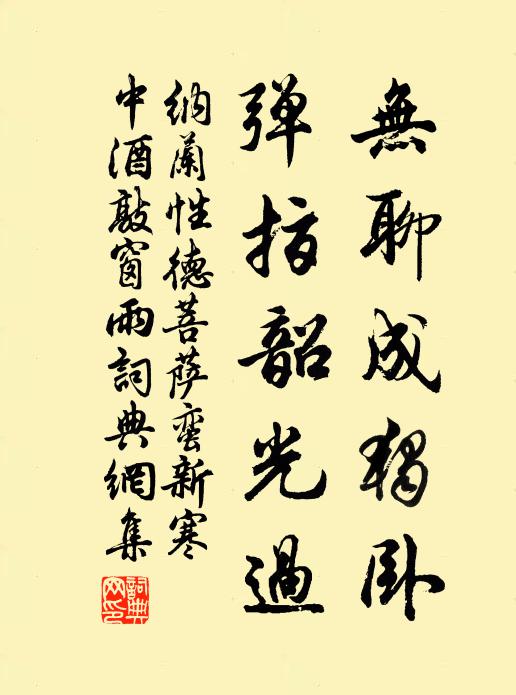 無聊成獨卧
彈指韶光過
納蘭性德菩薩蠻新寒
中酒敲窗雨詞典網集